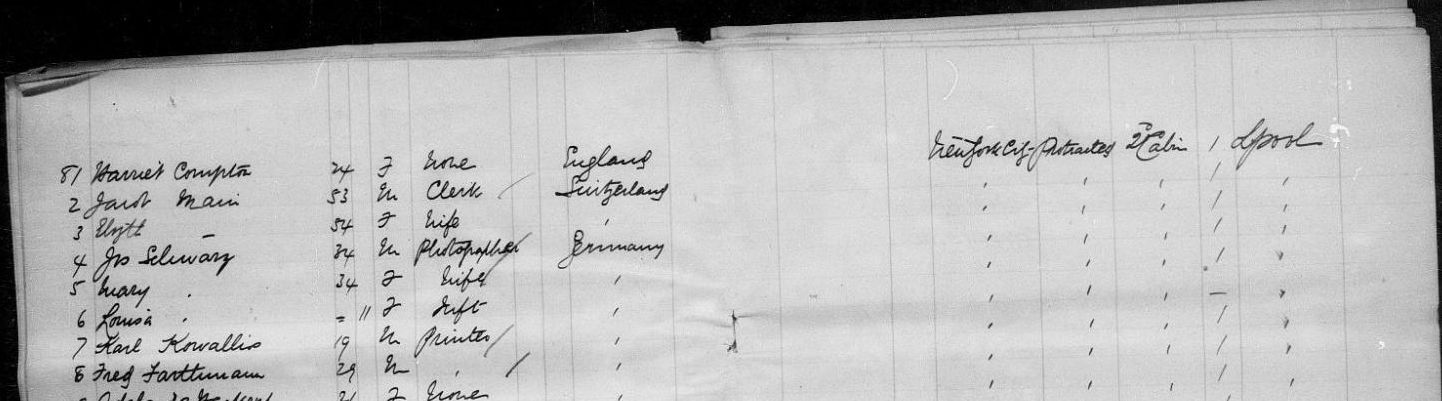 81 Harriet Compton 24 F None England New York City Protracted 2d Cabin 1 Lpool
2 Jacob 53 M Clerk / Switzerland ' ' ' / '
3 54 F Wife ' ' ' ' / '
4 Jos Schwarz 34 M Photographer / Germany ' ' ' / '
5 Mary " 34 F Wife ' ' ' ' '
6 Louisa " - 11 F Inft ' ' ' ' - '
7 Karl Kowallis 19 M Printer / ' ' ' ' / '
8 Fred 29 M ' / ' ' ' ' / '
F None ' ' ' ' '